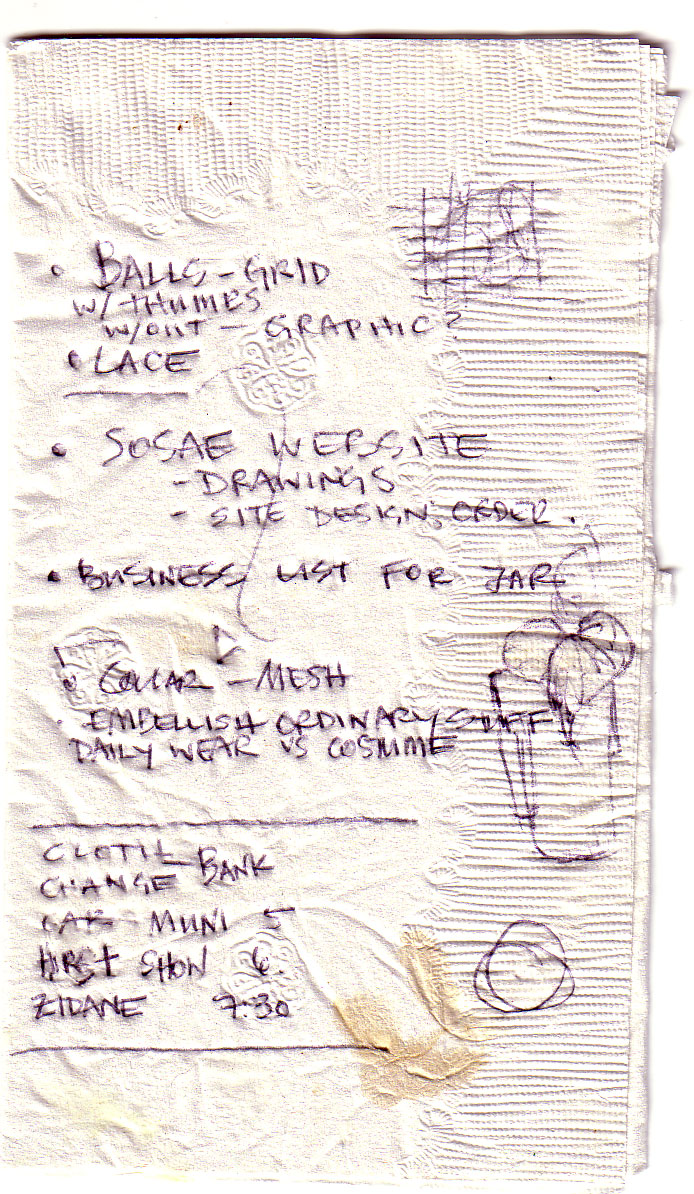 • BALLS - GRID
W/ THUMES
W/OUT - GRAPHIC?
• LACE
• SOSAE WEBSITE
- DRAWINGS
- SITE DESIGN; ORDER.
• BUSINESS LIST FOR
• COLLAR - MESH
EMBELLISH ORDINARY STUFF
DAILY WEAR VS COSTUME
BANK
CHANGE
CAR MUNI 5
FIRST SHOW 6.
ZIDANE 7:30